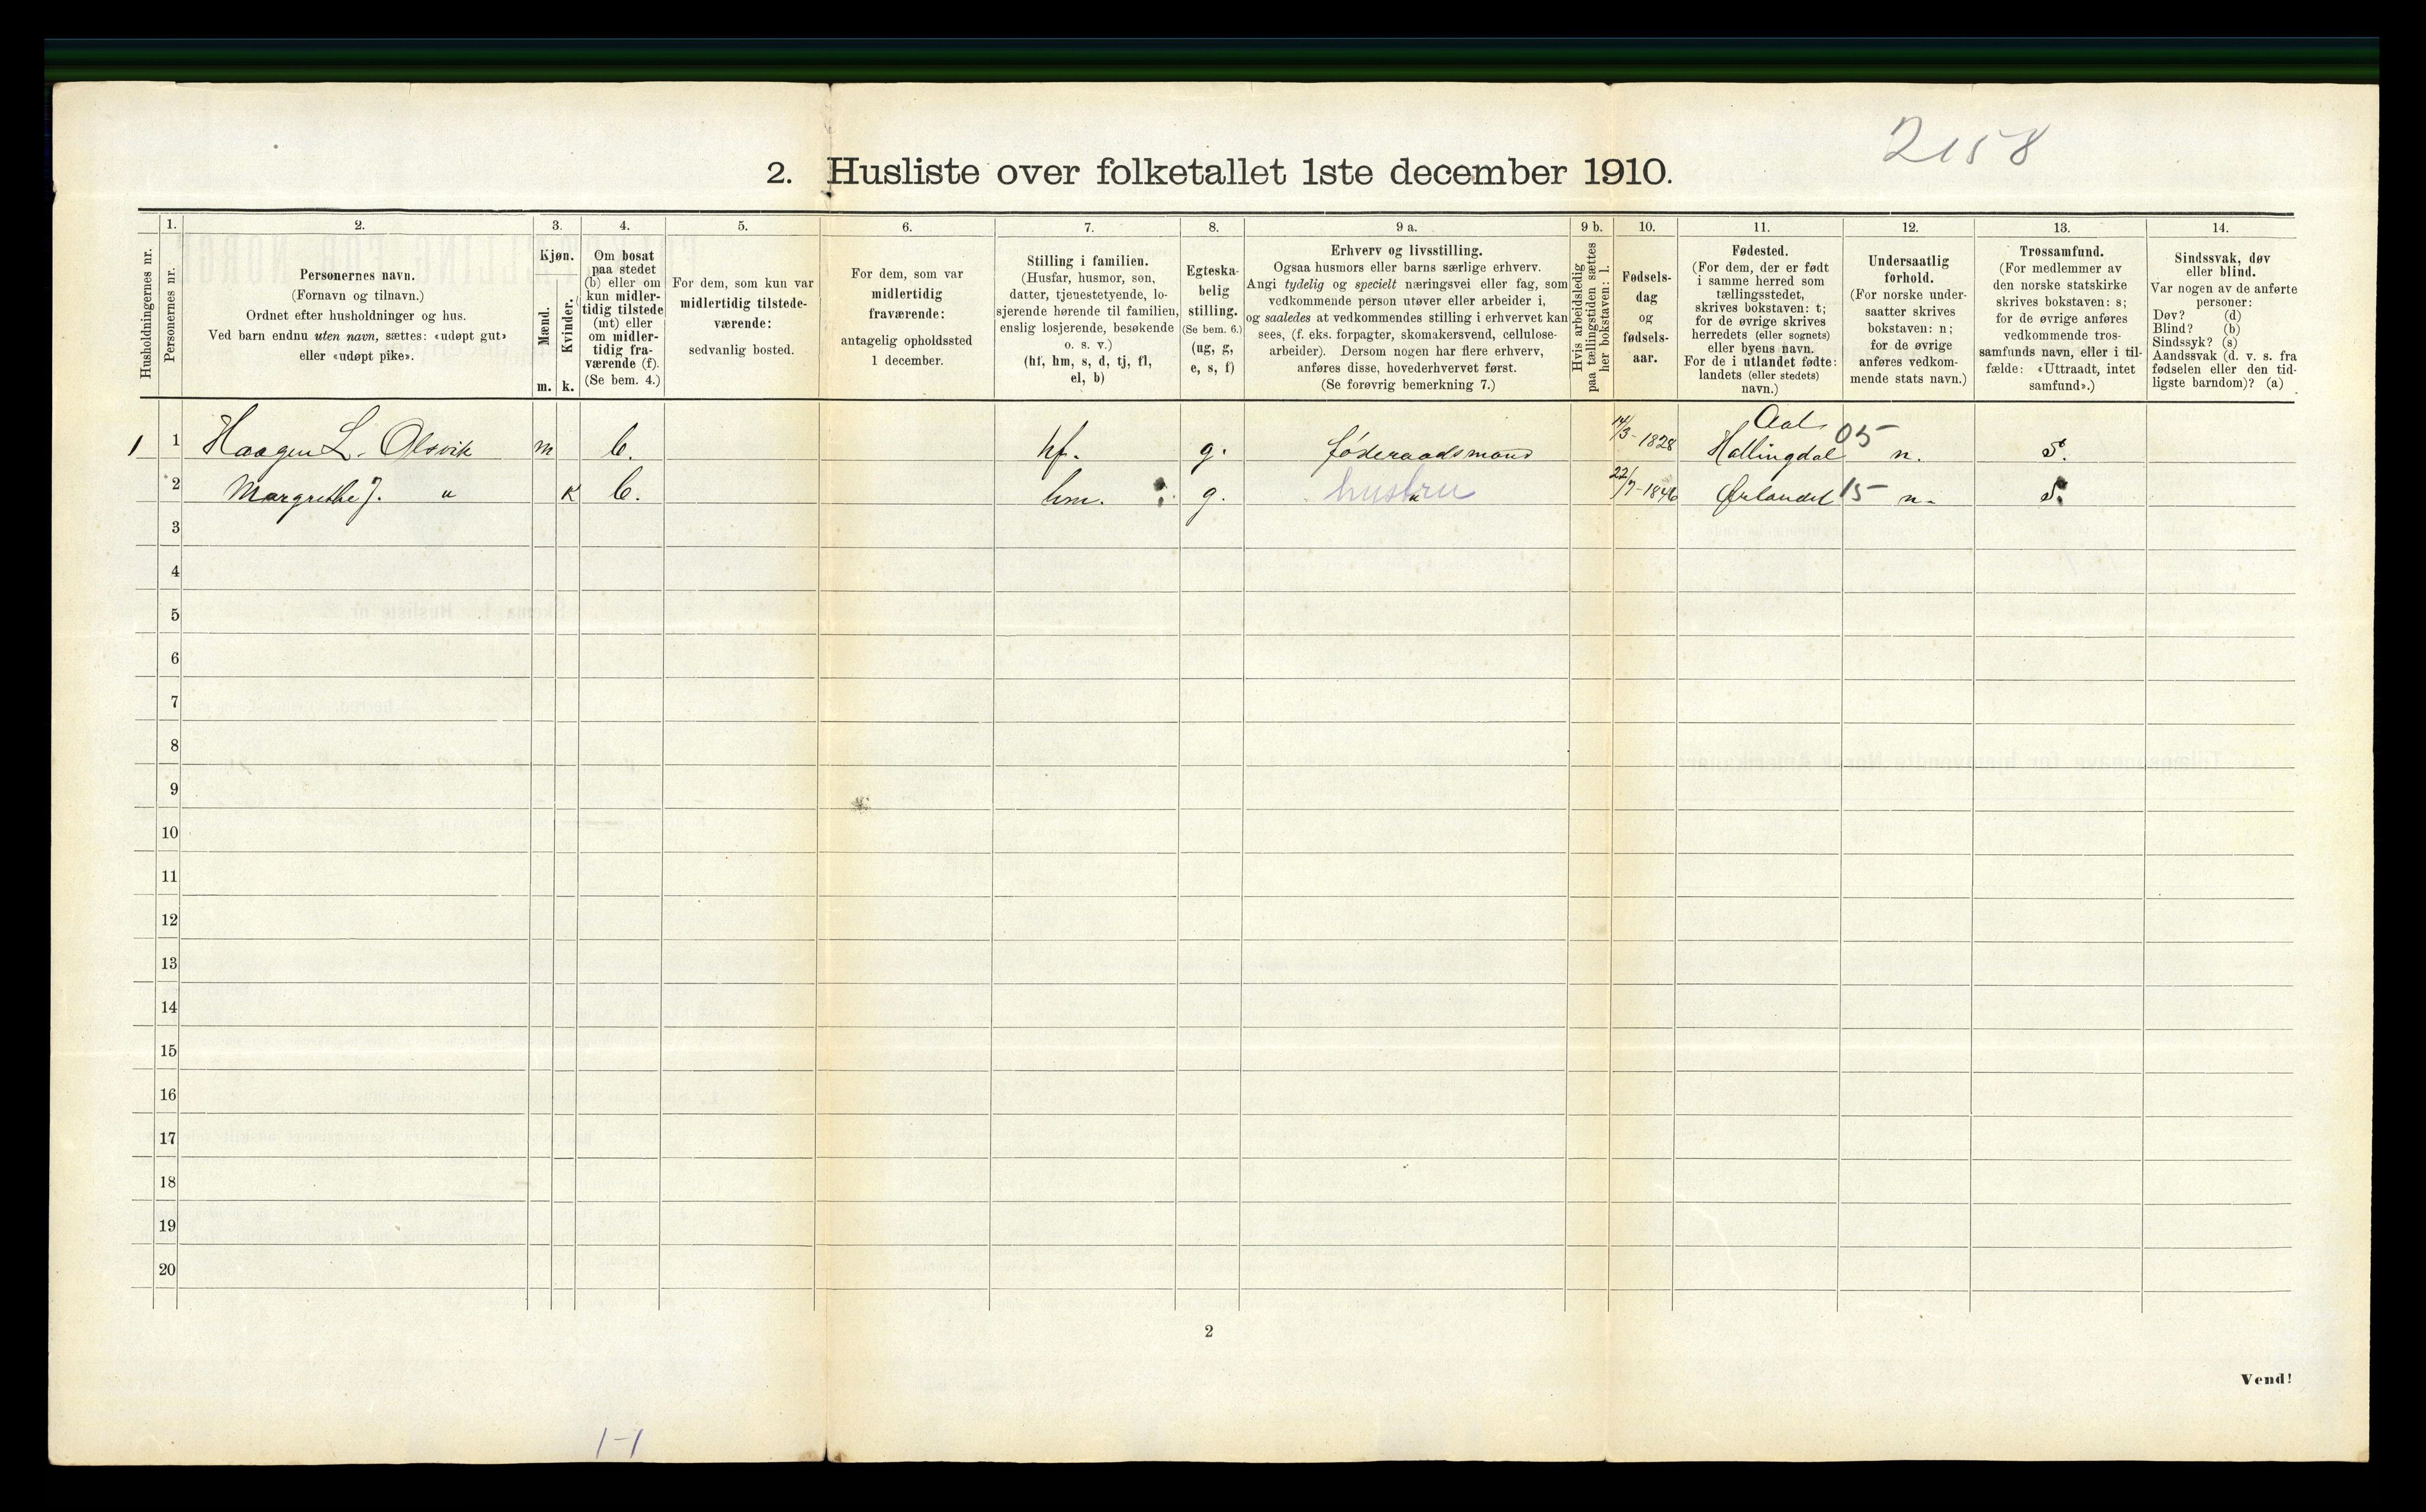 2158
2. Husliste over folketallet 1ste december 1910.
Husholdningernes nr.
1.
Personernes nr.
2.
Personernes navn.
(Fornavn og tilnavn.)
Ordnet efter husholdninger og hus.
Ved barn endnu uten navn, sættes: «udøpt gut»
eller «udøpt pike».
3.
Kjøn.
Mænd.
Kvinder.
m. k.
4.
Om bosat
paa stedet
(b) eller om
kun midler-
tidig tilstede
(mt) eller
om midler-
tidig fra-
værende (f).
(Se bem. 4.)
5.
For dem, som kun var
midlertidig tilstede-
værende:
sedvanlig bosted.
6.
For dem, som var
midlertidig
fraværende:
antagelig opholdssted
1 december.
7.
Stilling i familien.
(Husfar, husmor, søn,
datter, tjenestetyende, lo-
sjerende hørende til familien,
enslig losjerende, besøkende
o. s. v.)
(hf, hm, s, d, tj, fl,
el, b)
8.
Egteska-
belig
stilling.
(Se bem. 6.)
(ug, g,
e, s, f)
9 a.
Erhverv og livsstilling.
Ogsaa husmors eller barns særlige erhverv.
Angi tydelig og specielt næringsvei eller fag, som
vedkommende person utøver eller arbeider i,
og saaledes at vedkommendes stilling i erhvervet kan
sees, (f. eks. forpagter, skomakersvend, cellulose-
arbeider). Dersom nogen har flere erhverv,
anføres disse, hovederhvervet først.
(Se forøvrig bemerkning 7.)
9 b.
Hvis arbeidsledig
paa tællingstiden sættes
her bokstaven: l.
10.
Fødsels-
dag
og
fødsels-
aar.
11.
Fødested.
(For dem, der er født
i samme herred som
tællingsstedet,
skrives bokstaven: t;
for de øvrige skrives
herredets (eller sognets)
eller byens navn.
For de i utlandet fødte:
landets (eller stedets)
navn.)
12.
Undersaatlig
forhold.
(For norske under-
saatter skrives
bokstaven: n;
for de øvrige
anføres vedkom-
mende stats navn.)
13.
Trossamfund.
(For medlemmer av
den norske statskirke
skrives bokstaven: s;
for de øvrige anføres
vedkommende tros-
samfunds navn, eller i til-
fælde: «Uttraadt, intet
samfund».)
14.
Sindssvak, døv
eller blind.
Var nogen av de anførte
personer:
Døv? (d)
Blind? (b)
Sindssyk? (s)
Aandssvak (d. v. s. fra
fødselen eller den tid-
ligste barndom)? (a)
1 1 Haagen L. Olsvik m b. hf. g. føderaadsmand 14/3-1828 Aal Hallingdal 05 n. S.
2 Margrethe J. " k b. hm. g. hustru " 22/7-1846 Ørlandet 15 n. S.
3
4
5
6
7
8
9
10
11
12
13
14
15
16
17
18
19
20
2
Vend!
1-1